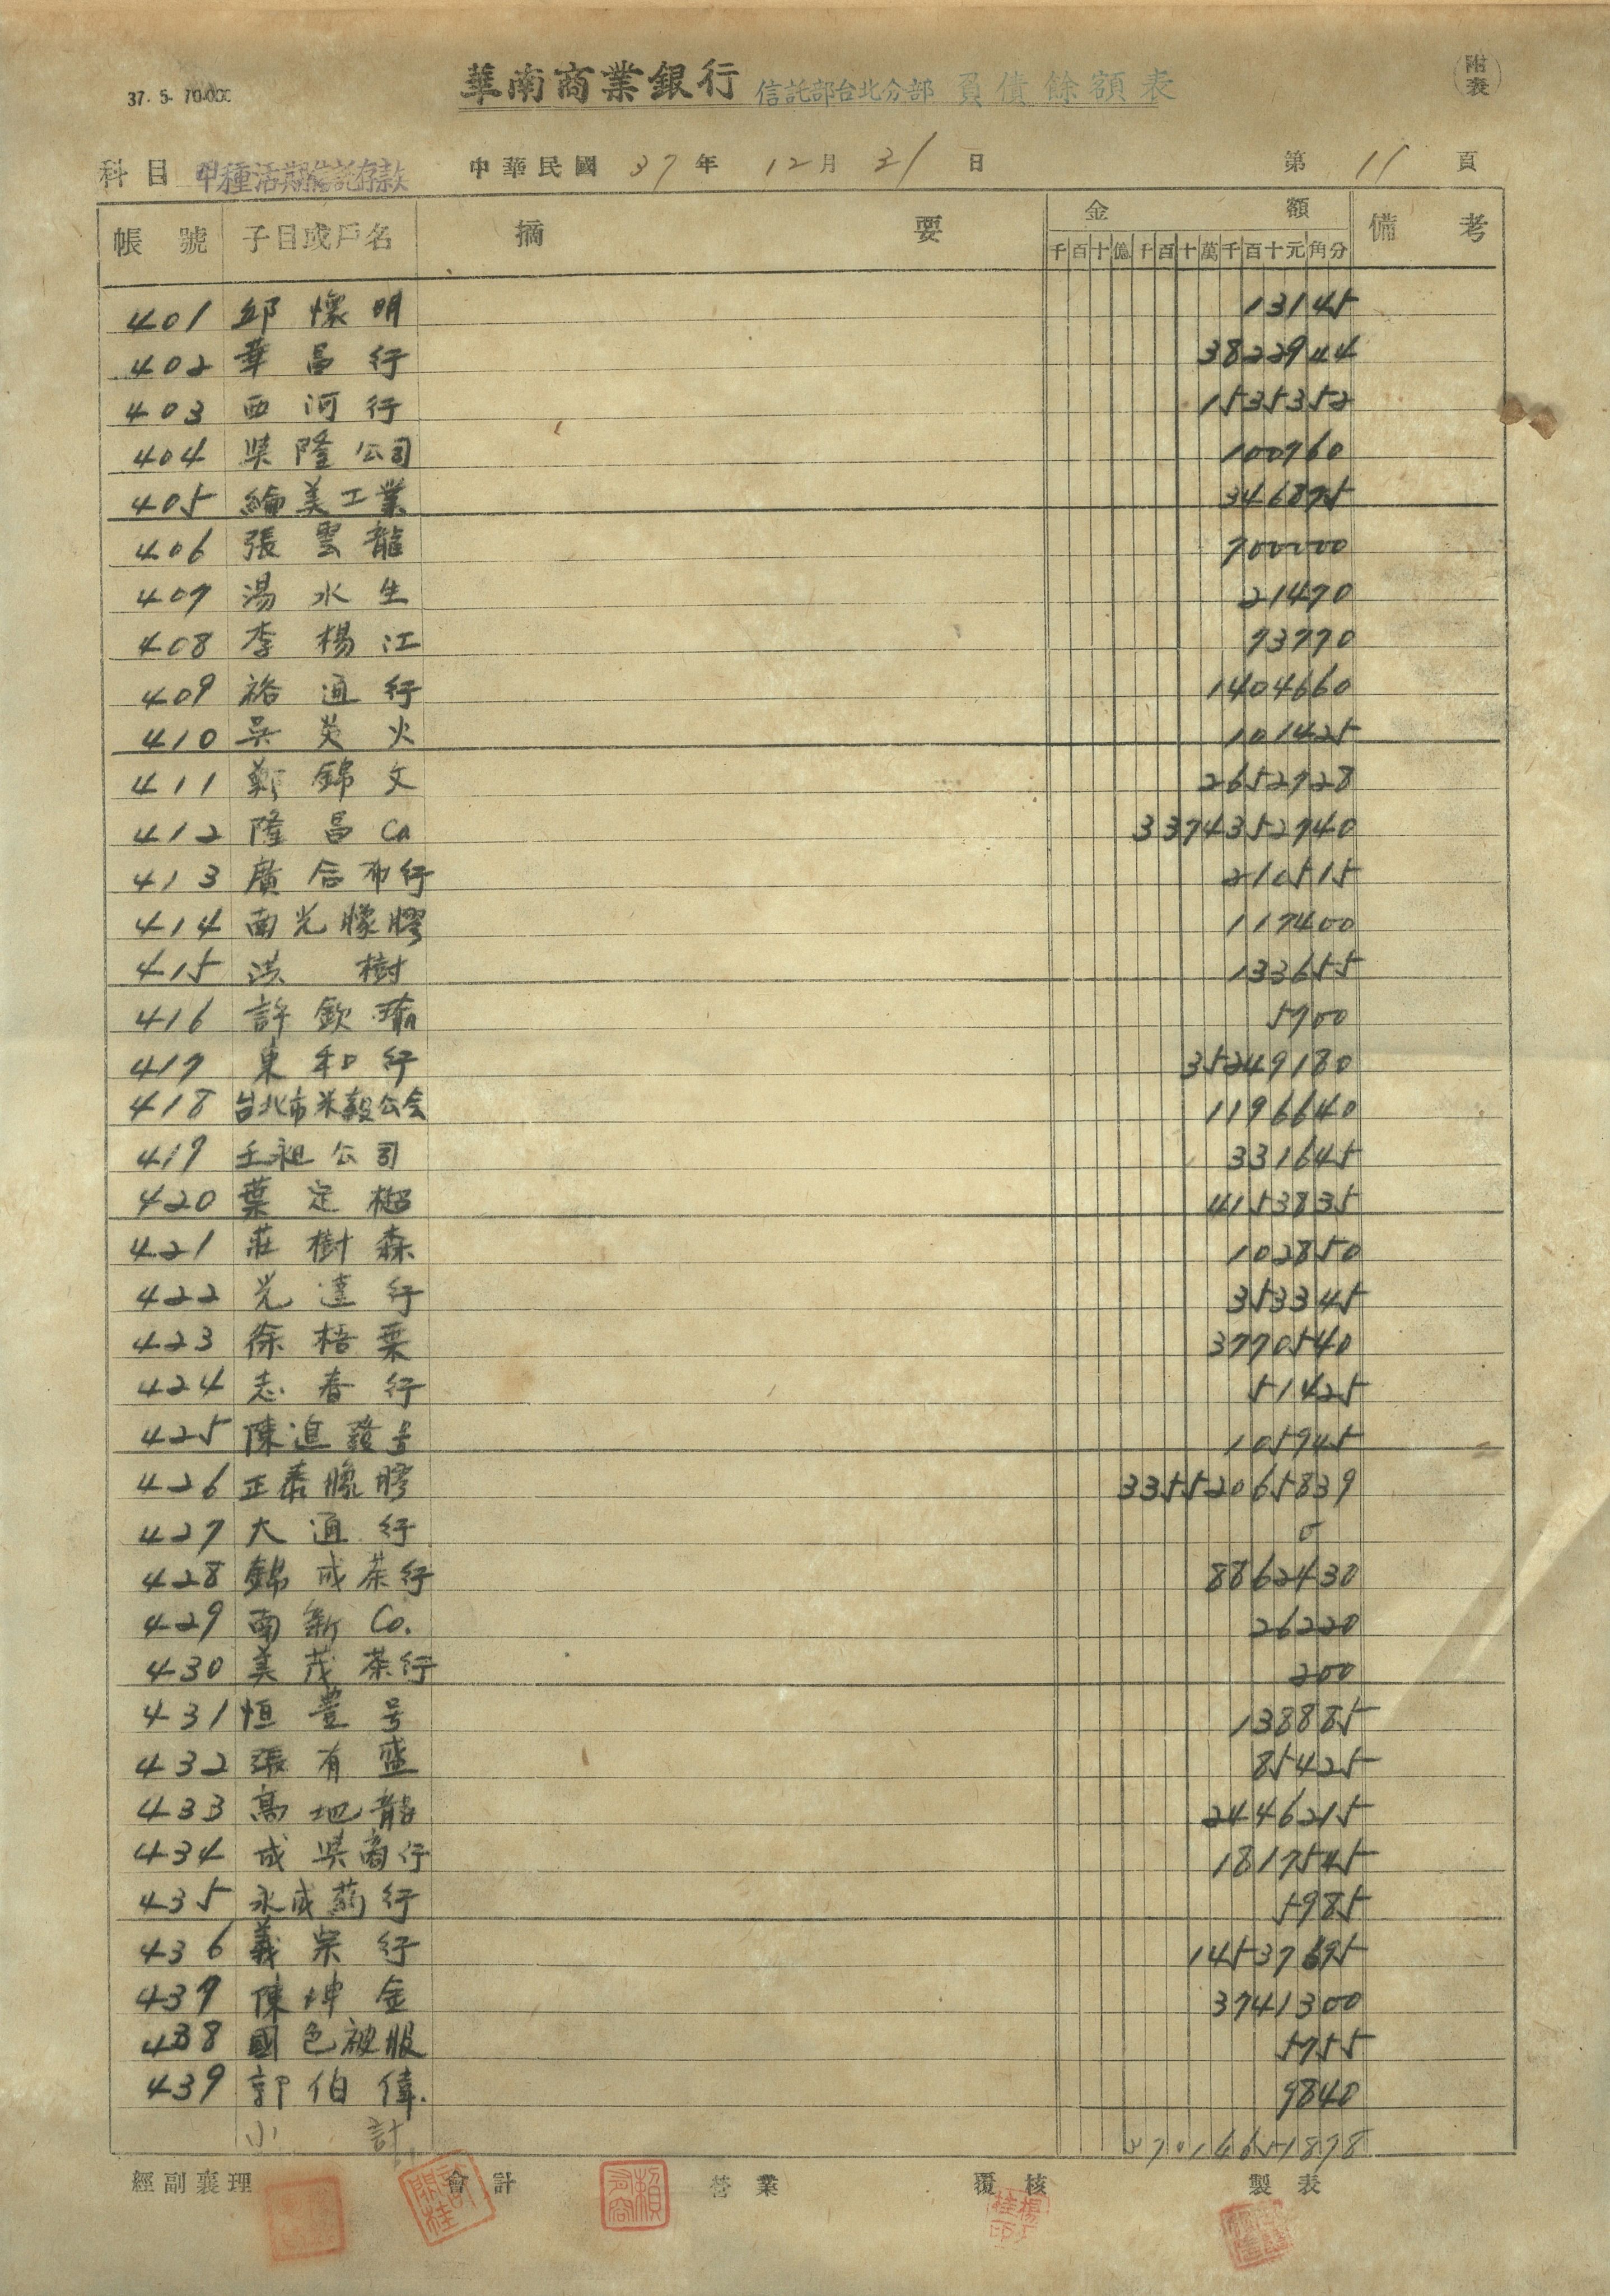 37. 5- 70.000
華南商業銀行 信託部台北分部 負債餘額表
附表
科目 甲種活期信託存款 中華民國 37年 12月 31日 第 11 頁
帳號 子目或戶名 摘要 金額 備考
千百十億千百十萬千百十元角分
401 邱懷明 13145
402 華昌行 3822944
403 西河行 1535352
404 吳隆公司 100760
405 綸美工業 346875
406 張雲龍 700000
407 湯水生 21470
408 李楊江 73770
409 裕通行 1404660
410 吳炎火 101425
411 鄭錦文 2652728
412 隆昌Co 3374352740
413 廣合布行 210515
414 南光橡膠 117400
415 洪樹 133655
416 許欽 5700
417 東和行 35249180
418 台北市米穀公会 1196640
419 公司 331645
420 葉定 4153835
421 莊樹森 102850
422 光達行 353345
423 徐梧栗 3770540
424 志春行 51425
425 陳進發号 105945
426 正泰橡膠 33552065839
427 大通行 0
428 錦成茶行 8862430
429 南新Co. 26220
430 美茂茶行 200
431 恒豊号 138885
432 張有盛 85425
433 高地龍 2446215
434 成吳商行 1817545
435 永成行 5985
436 義宗行 14537695
437 陳坤金 3741300
438 國色被服 5755
439 郭伯偉. 9840
小計 37014651878
經副襄理 會計 營業 覆核 製表